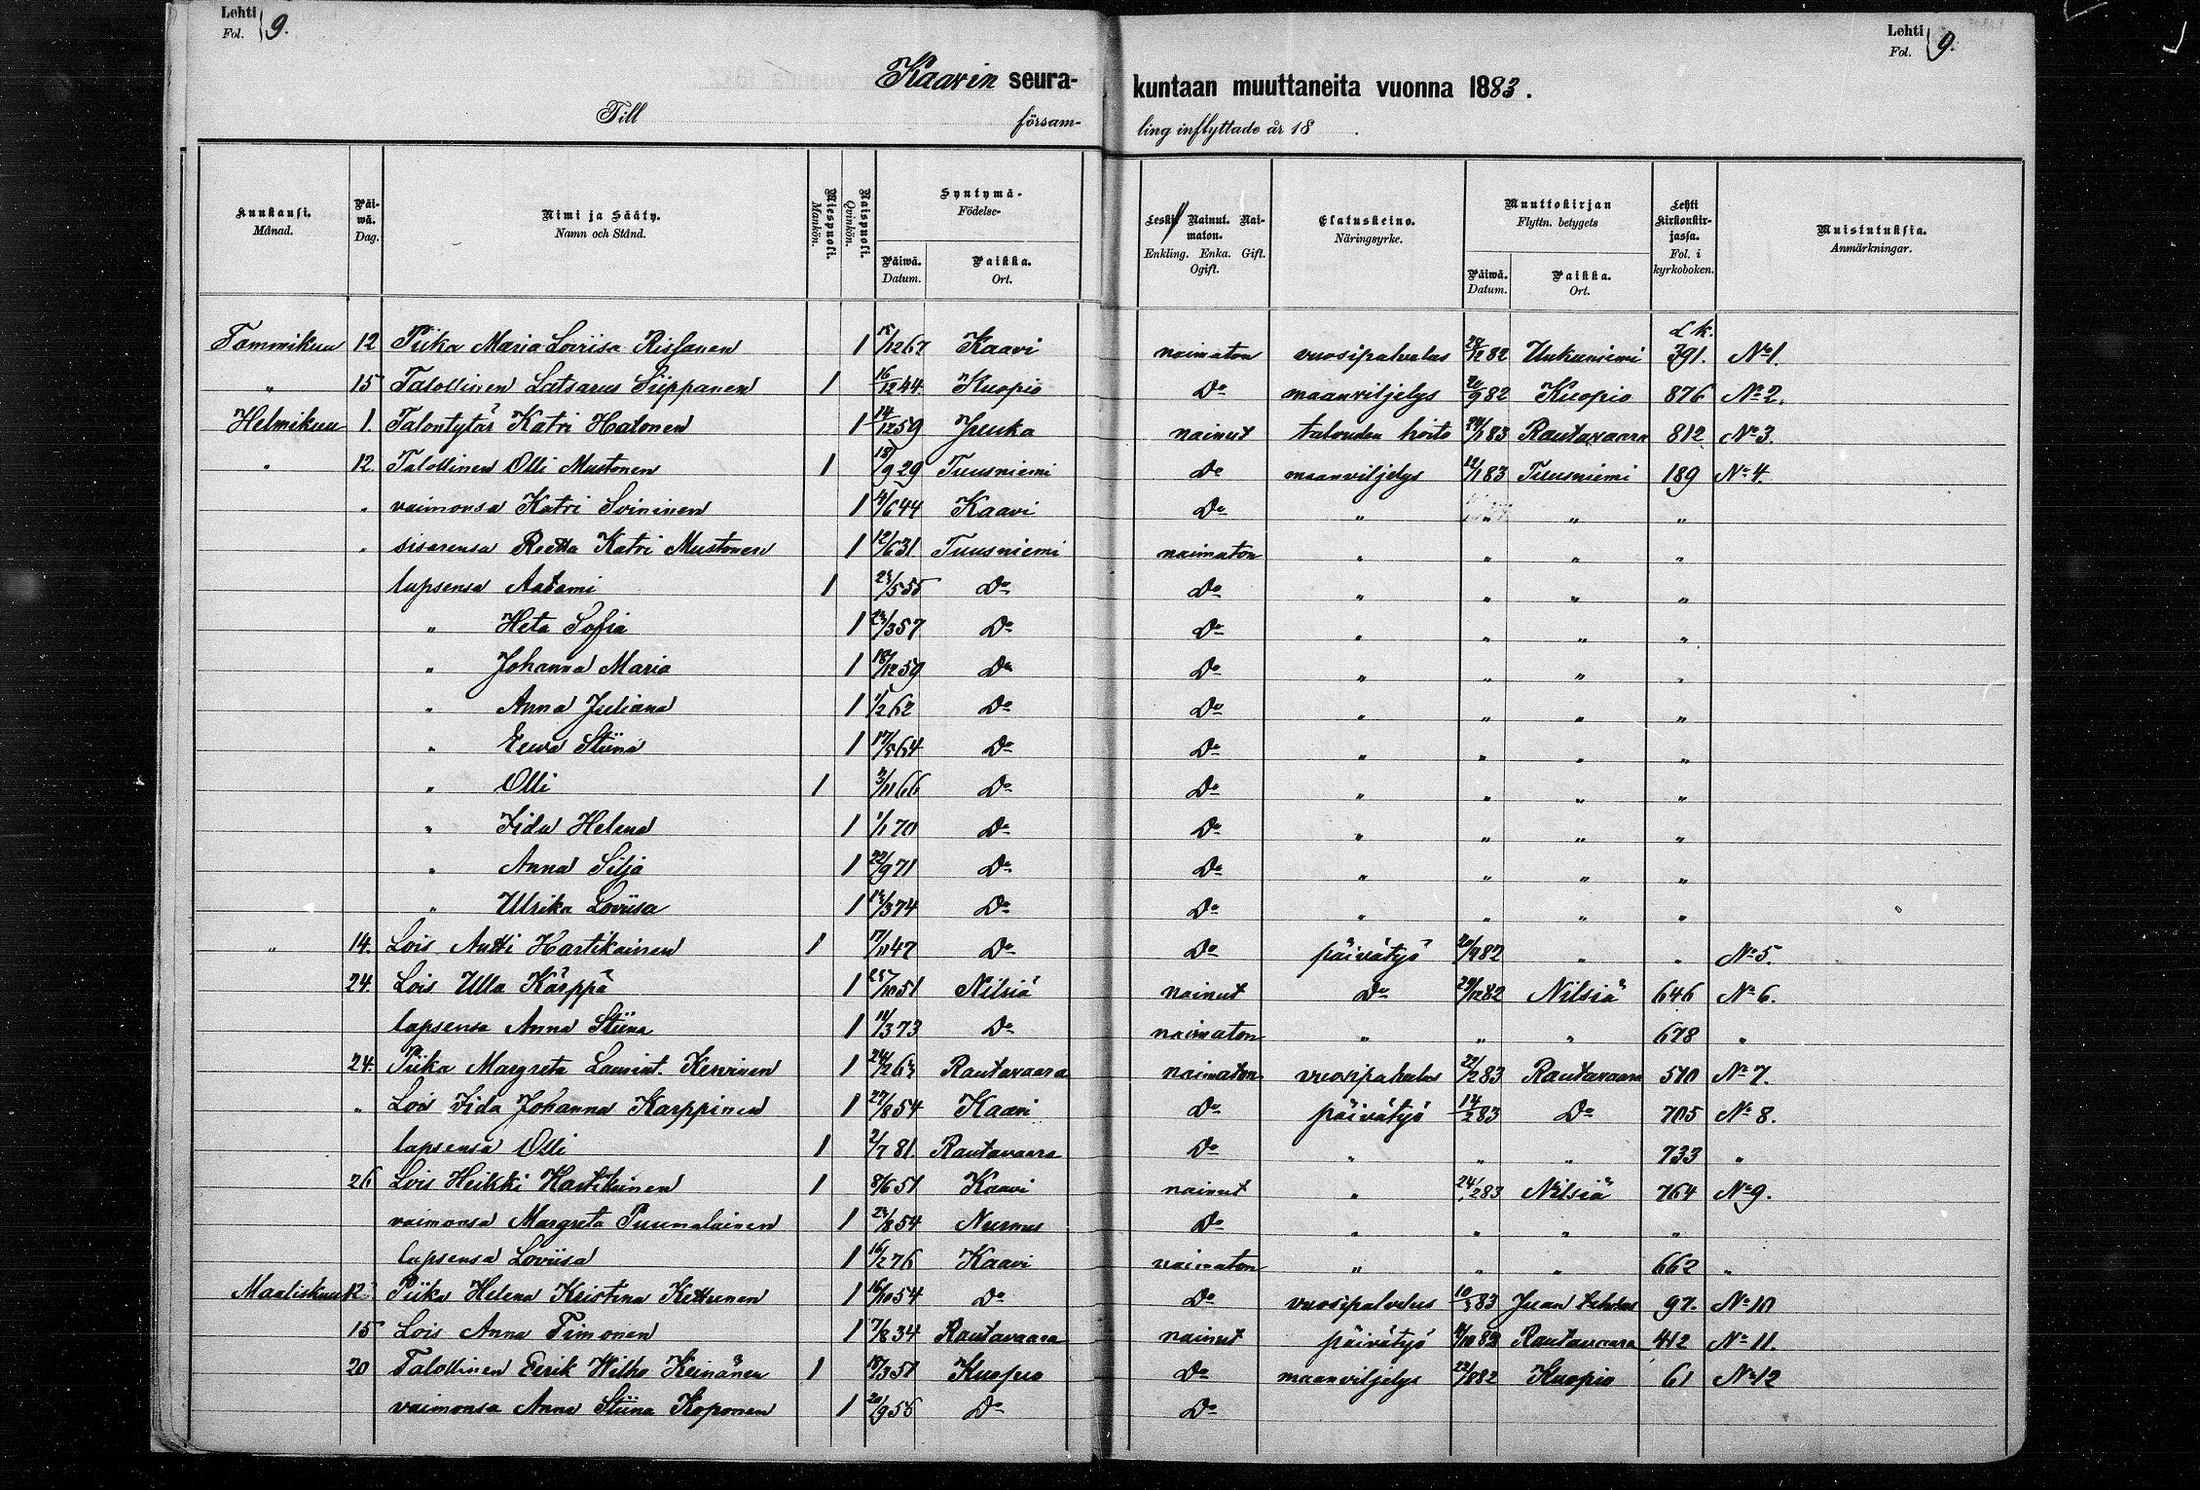 Lehti Fol. } 9.
Lehti Fol. } 9.
Kaavin seura- kuntaan muuttaneita vuonna 1883.
Till församling inflyttade år 18 .
Kuukausi. Månad. Päiwä. Dag. Nimi ja Sääty. Namn och Stånd. Miespuoli. Mankön. Naispuoli. Qvinkön. Syntymä- Födelse- Päiwä. Datum. Paikka. Ort. Leski. Nainut. Naimaton. Enkling. Enka. Gift. Ogift. Elatuskeino. Näringsyrke. Muuttokirjan Flyttn. betygets Päiwä. Datum. Paikka. Ort. Lehti kirkonkirjassa. Fol. i kyrkoboken. Muistutuksia. Anmärkningar.
L k.
Tammikuu 12 Piika Maria Loviisa Rissanen 1 15/12 67 Kaavi naimaton vuosipalvelus 28/12 82 391. No 1.
" 15 Talollinen Latsarus Siippanen 1 16/12 44 Kuopio Do maanviljelys 20/9 82 Kuopio 876 No 2.
Helmikuu 1. Talontytär Katri Hatonen 1 14/12 59 Juuka nainut talouden hoito 83 Rautavaara 812 No 3.
" 12. Talollinen Olli Mustonen 1 18/9 29 Tuusniemi Do maanviljelys 12/1 83 Tuusniemi 189 No 4.
" vaimonsa Katri Soininen 1 4/6 44 Kaavi Do " " " "
" sisarensa Reetta Katri Mustonen 1 12/6 31 Tuusniemi naimaton " " " "
lapsensa Aatami 1 23/5 55 Do Do " " " "
" Heta Sofia 1 23/3 57 Do Do " " " "
" Johanna Maria 1 18/12 59 Do Do " " " "
" Anna Juliana 1 1/2 62 Do Do " " " "
" Eewa Stiina 1 17/5 64 Do Do " " " "
" Olli 1 3/11 66 Do Do " " " "
" Iida Helena 1 1/1 70 Do Do " " " "
" Anna Silja 1 22/9 71 Do Do " " " "
" Ulrika Loviisa 1 13/3 74 Do Do " " " "
" 14. Lois Antti Hartikainen 1 17/11 47 Do Do päivätyö 20/9 82 " " No 5.
24. Lois Ulla Kärppä 1 25/10 51 Nilsiä nainut Do 29/12 82 Nilsiä 646 No 6.
lapsensa Anna Stiina 1 11/3 73 Do naimaton " " " 678 "
24. Piika Margreta Kervinen 1 24/2 63 Rautavaara naimaton vuosipalvelus 22/2 83 Rautavaara 510 No 7.
" Lois Iida Johanna Karppinen 1 27/8 54 Kaavi Do päivätyö 14/2 83 Do 705 No 8.
lapsensa Olli 1 2/7 81. Rautavaara Do " " " 733 "
26 Lois Heikki Hartikainen 1 8/6 51 Kaavi nainut " 24/2 83 Nilsiä 764 No 9.
vaimonsa Margreta Puumalainen 1 23/8 54 Nurmes Do " " " "
lapsensa Loviisa 1 16/2 76 Kaavi naimaton " " " 662 "
Maaliskuu 12 Piika Helena Kristina Kettunen 1 16/10 54 Do Do vuosipalvelus 10/3 83 Juan tehdas 97. No 10
15 Lois Anna Timonen 1 7/8 34 Rautavaara nainut päivätyö 82 Rautavaara 412 No 11.
20 Talollinen Eerik Wilho Keinänen 1 18/3 51 Kuopio Do maanviljelys 23/8 82 Kuopio 61 No 12
vaimonsa Anna Stiina Koponen 1 20/9 55 Do Do